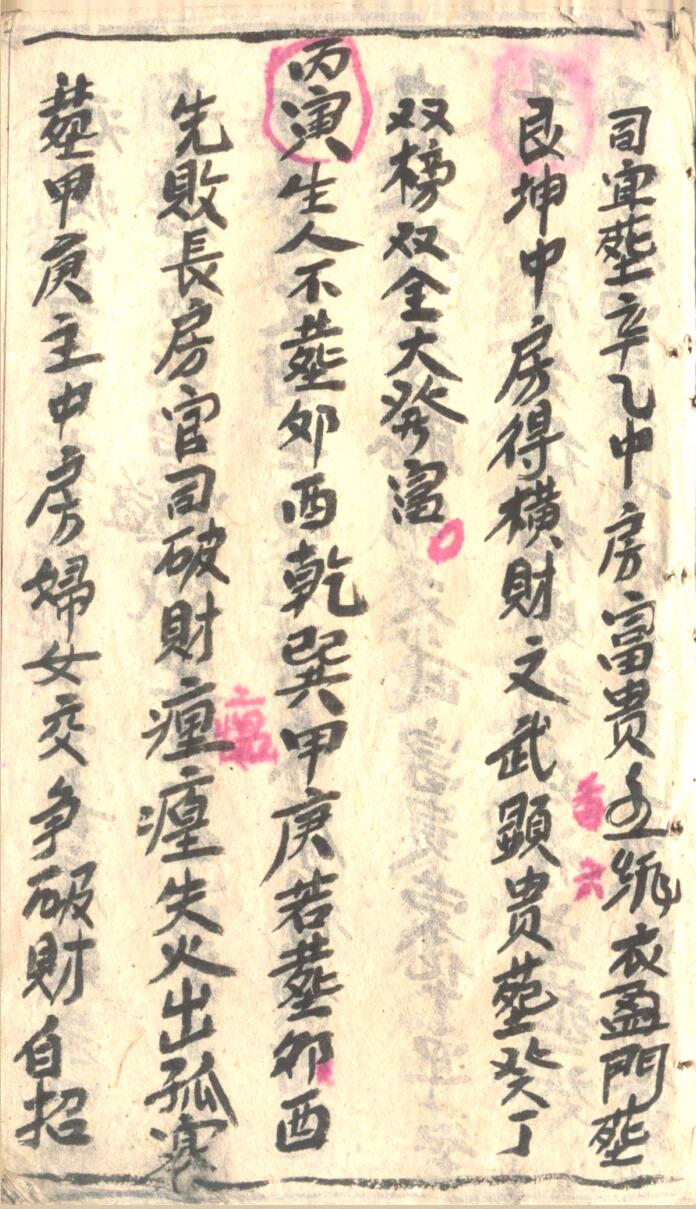 司宜塟辛乙中房富贵至绯衣盈門塟
艮坤中房得横財文武顕贵塟癸丁
双榜双全大発富
丙寅生人不塟邜酉乾巽甲庚若塟邜酉
先敗長房官司破財瘟㾮失火出孤寡
塟甲庚主中房婦女交争破財自招